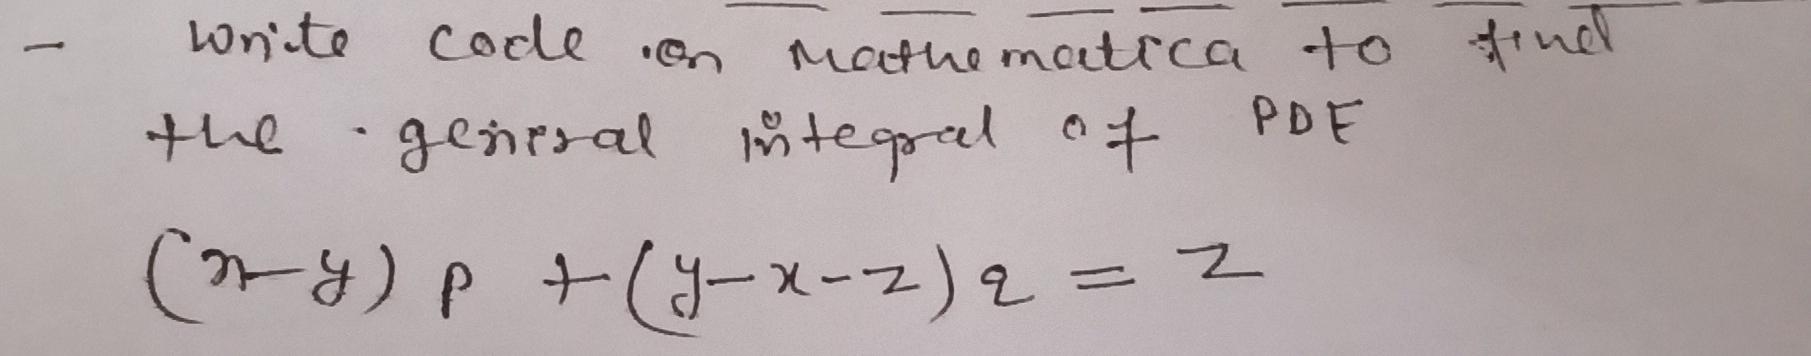 - Write code on Mathematica to find
the general integral of PDE
(x-y) p + (y-x-z) q = z